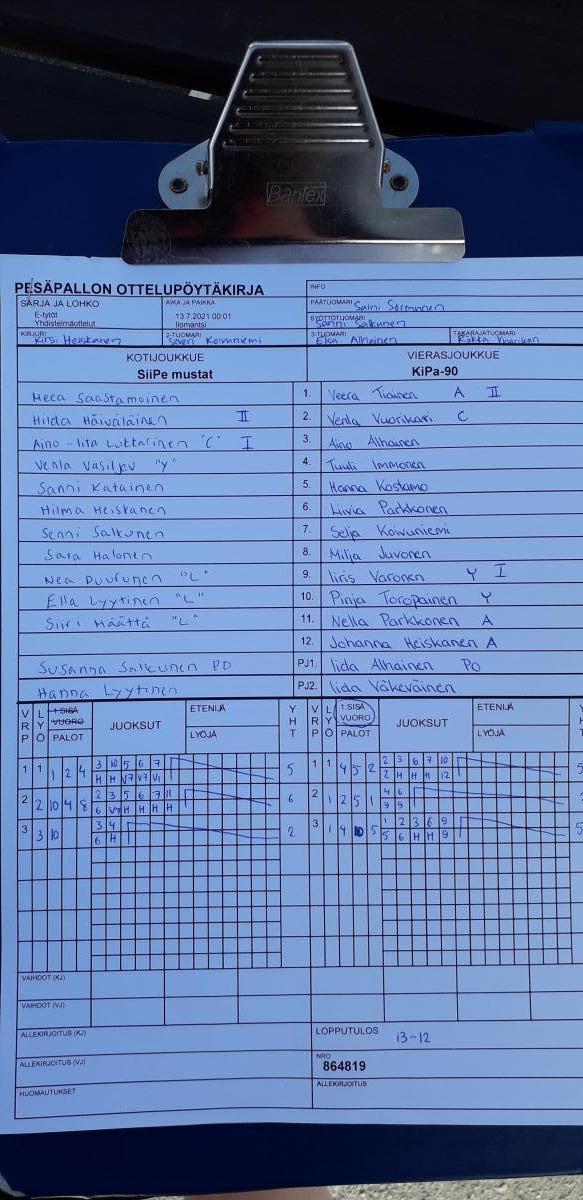 Bantex
PESÄPALLON OTTELUPÖYTÄKIRJA
INFO
SARJA JA LOHKO
E-tytöt
Yhdistelmäottelut
AIKA JA PAIKKA
13.7.2021 00:01
Ilomantsi
PÄÄTUOMARI Saini Sormunen
SYÖTTÖTUOMARI Sanni Salkunen
KIRJURI Kirsi Heiskanen
2-TUOMARI Severi Koivuniemi
3-TUOMARI Elsa Alhainen
TAKARAJATUOMARI Riikka Vuorikari
KOTIJOUKKUE
SiiPe mustat
VIERASJOUKKUE
KiPa-90
Meea Saastamoinen 1. Veera Tiainen A II
Hilda Häiväläinen II 2. Venla Vuorikari C
Aino-Iita Luttarinen "C" I 3. Aino Alhainen
Venla Vasiljev "Y" 4. Tuuli Immonen
Sanni Katainen 5. Hanna Kostamo
Hilma Heiskanen 6. Liivia Parkkonen
Senni Salkunen 7. Selja Koivuniemi
Sara Halonen 8. Milja Juvonen
Nea Puurunen "L" 9. Iiris Varonen Y I
Ella Lyytinen "L" 10. Pinja Toropainen Y
Siiri Määttä "L" 11. Nella Parkkonen A
12. Johanna Heiskanen A
Susanna Salkunen PO PJ1. Iida Alhainen PO
Hanna Lyytinen PJ2. Iida Väkeväinen
VRP LYÖ 1.SISÄ VUORO PALOT JUOKSUT ETENIJÄ LYÖJÄ YHT VRP LYÖ 1.SISÄ VUORO PALOT JUOKSUT ETENIJÄ LYÖJÄ
1 1 1 2 4 3 10 5 6 7 5 1 1 4 5 2 2 3 6 7 10 5
H H V7 V7 V1 2 H H H 12
2 2 10 4 8 2 3 5 6 7 11 6 2 1 2 5 1 4 6
6 V7 H H H H 9 9
3 3 10 3 4 2 3 1 4 10 5 1 2 3 6 9 5
6 H 5 6 H H 9
VAIHDOT (KJ)
VAIHDOT (VJ)
ALLEKIRJOITUS (KJ)
LOPPUTULOS 13-12
ALLEKIRJOITUS (VJ)
NRO
864819
HUOMAUTUKSET
ALLEKIRJOITUS